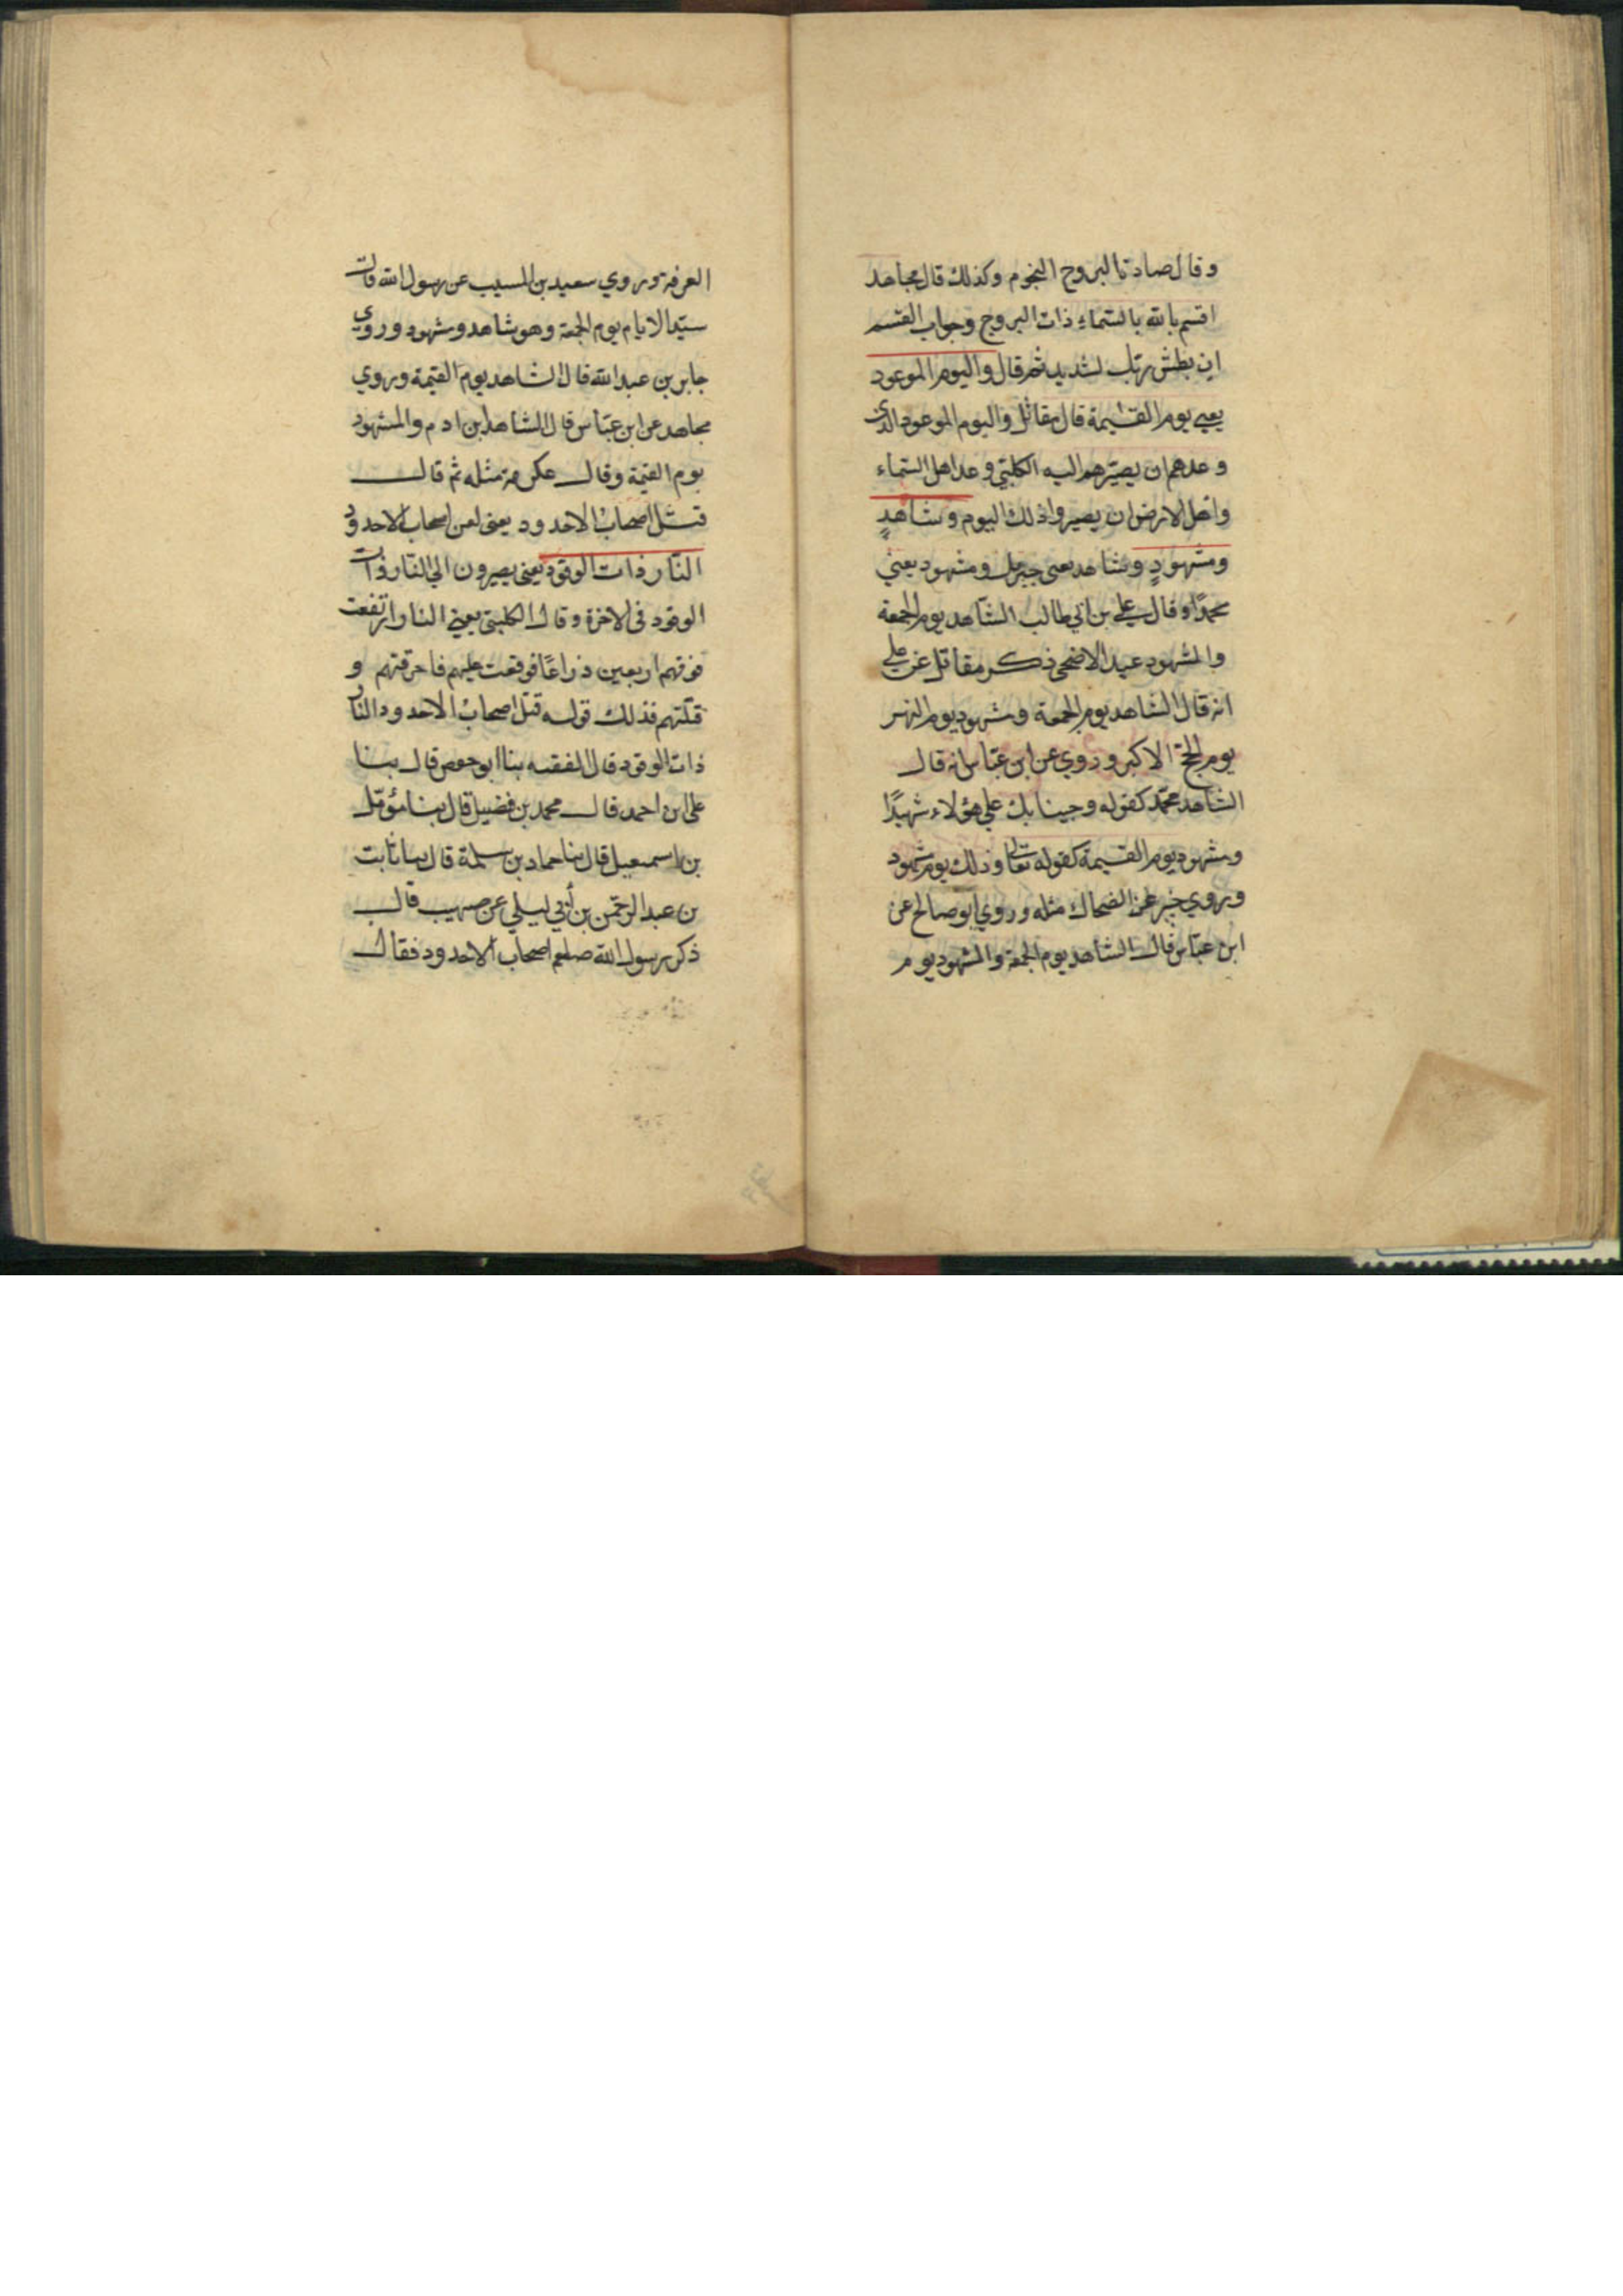 وقال صادتا البروج النجوم وكذلك قال مجاهد
اقسم بالله بالسّماء ذات البروج وجواب القسم
ان بطش ربّك لشديد ثم قال واليوم الموعود
يعني يوم القيمة قال مقاتل واليوم الموعود الذي
وعدهم ان يصيّرهم اليه الكلبيّ وعد اهل السّماء
واهل الارض ان يصيروا ذلك اليوم وشاهدٍ
ومشهودٍ وشاهد يعني جبرئل ومشهود يعني
محمدًا وقال علي بن ابي طالب الشاهد يوم الجمعة
والمشهود عيد الاضحى ذكر مقاتل عن علي
انه قال الشاهد يوم الجمعة ومشهود يوم النحر
يوم الحجّ الاكبر وروي عن ابن عبّاس انه قال
الشاهد محمّد كقوله وجينا بك علي هؤلاء شهيدًا
ومشهود يوم القيمة كقوله تعالى وذلك يوم مشهود
وروي عن الضحاك مثله وروي ابو صالح عن
ابن عبّاس قال الشاهد يوم الجمعة والمشهود يوم
العرفة وروي سعيد بن المسيب عن رسول الله قال
سيّد الايام يوم الجمعة وهو شاهد ومشهود وروي
جابر بن عبد الله قال الشاهد يوم القيمة وروي
مجاهد عن ابن عبّاس قال الشاهد ابن ادم والمشهود
يوم القيمة وقال عكرمة مثله ثم قال
قتل اصحاب الاخدود يعني لعن اصحاب الاخدود
النّار ذات الوقود يعني يصيرون الي النّار ذات
الوقود في الاخرة وقال الكلبيّ يعني النار ارتفعت
فوقهم اربعين ذراعًا فوقعت عليهم فاحرقتهم و
قتلتهم فذلك قوله قتل اصحاب الاخدود النّار
ذات الوقود قال الفقيه بنا ابو جعفر قال بنا
علي ابن احمد قال محمد بن فضيل قال بنا مؤمّل
بن اسمعيل قال بنا حماد بن سلمة قال بنا ثابت
بن عبد الرحمن بن أبي ليلي عن صهيب قال
ذكر رسول الله صلعم اصحاب الاخدود فقال